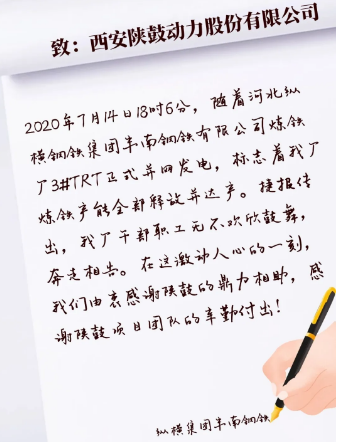 致：西安陕鼓动力股份有限公司
2020年7月14日18时6分，随着河北纵
横钢铁集团丰南钢铁有限公司炼铁
厂3#TRT正式并网发电，标志着我厂
炼铁产能全部释放并达产。捷报传
出，我厂干部职工无不欢欣鼓舞，
奔走相告。在这激动人心的一刻，
我们由衷感谢陕鼓的鼎力相助，感
谢陕鼓项目团队的辛勤付出！
纵横集团丰南钢铁